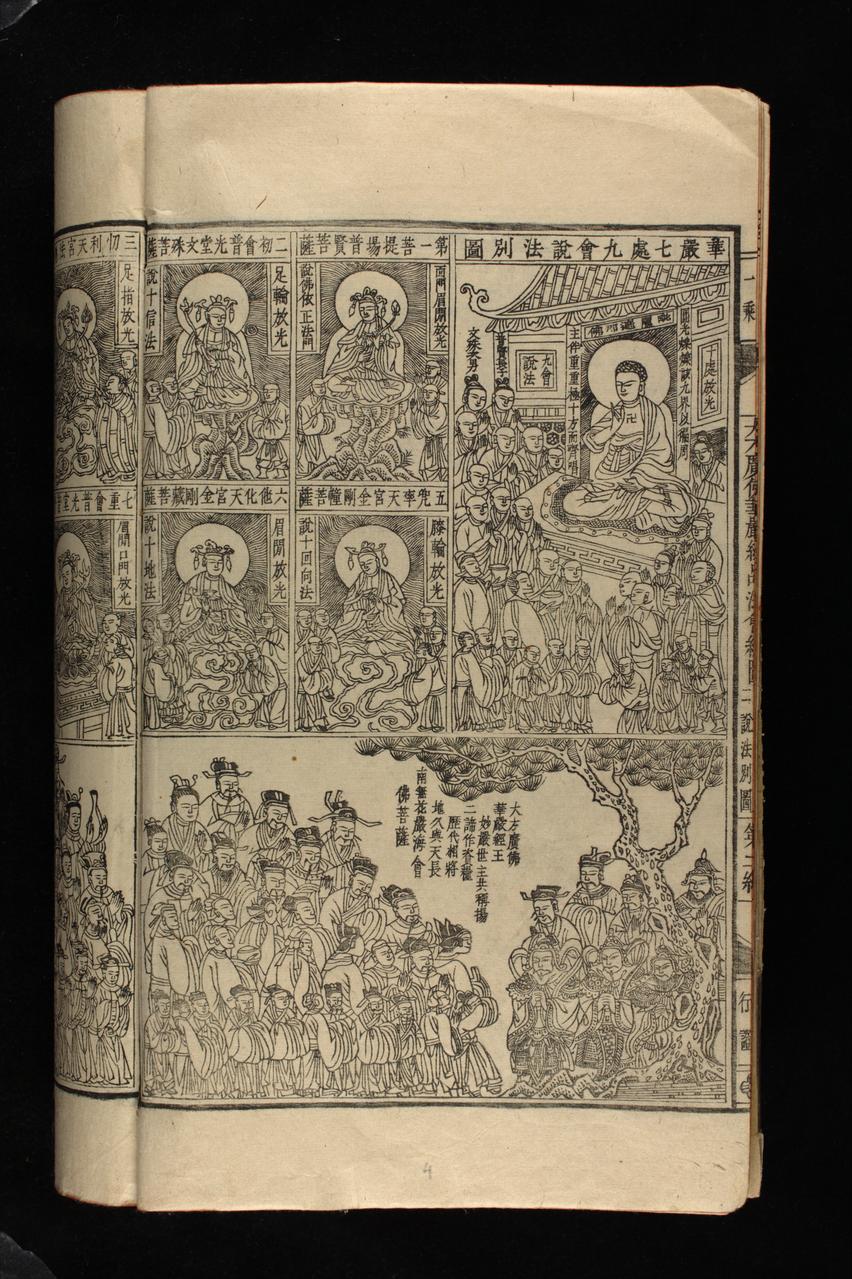 華嚴七處九會說法別圖
十處放光
毗盧遮那佛
主伴重重極十方而齊唱
九會
說法
普賢長子
文殊次男
第一菩提場普賢菩薩
面門眉間放光
說佛依正法門
二初會普光堂文殊菩薩
足輪放光
說十信法
三忉利天宮法
足指放光
五兜率天宮金剛幢菩薩
膝輪放光
說十回向法
六他化天宮金剛藏菩薩
眉間放光
說十地法
七重會普光堂普
眉間口門放光
大方廣佛
華嚴經王
妙嚴世主共稱揚
二諦作資糧
歷代相將
地久與天長
南無花嚴海會
佛菩薩
一乘
大方廣佛華嚴經品法會綸圖
二說法別圖
第二綸
行